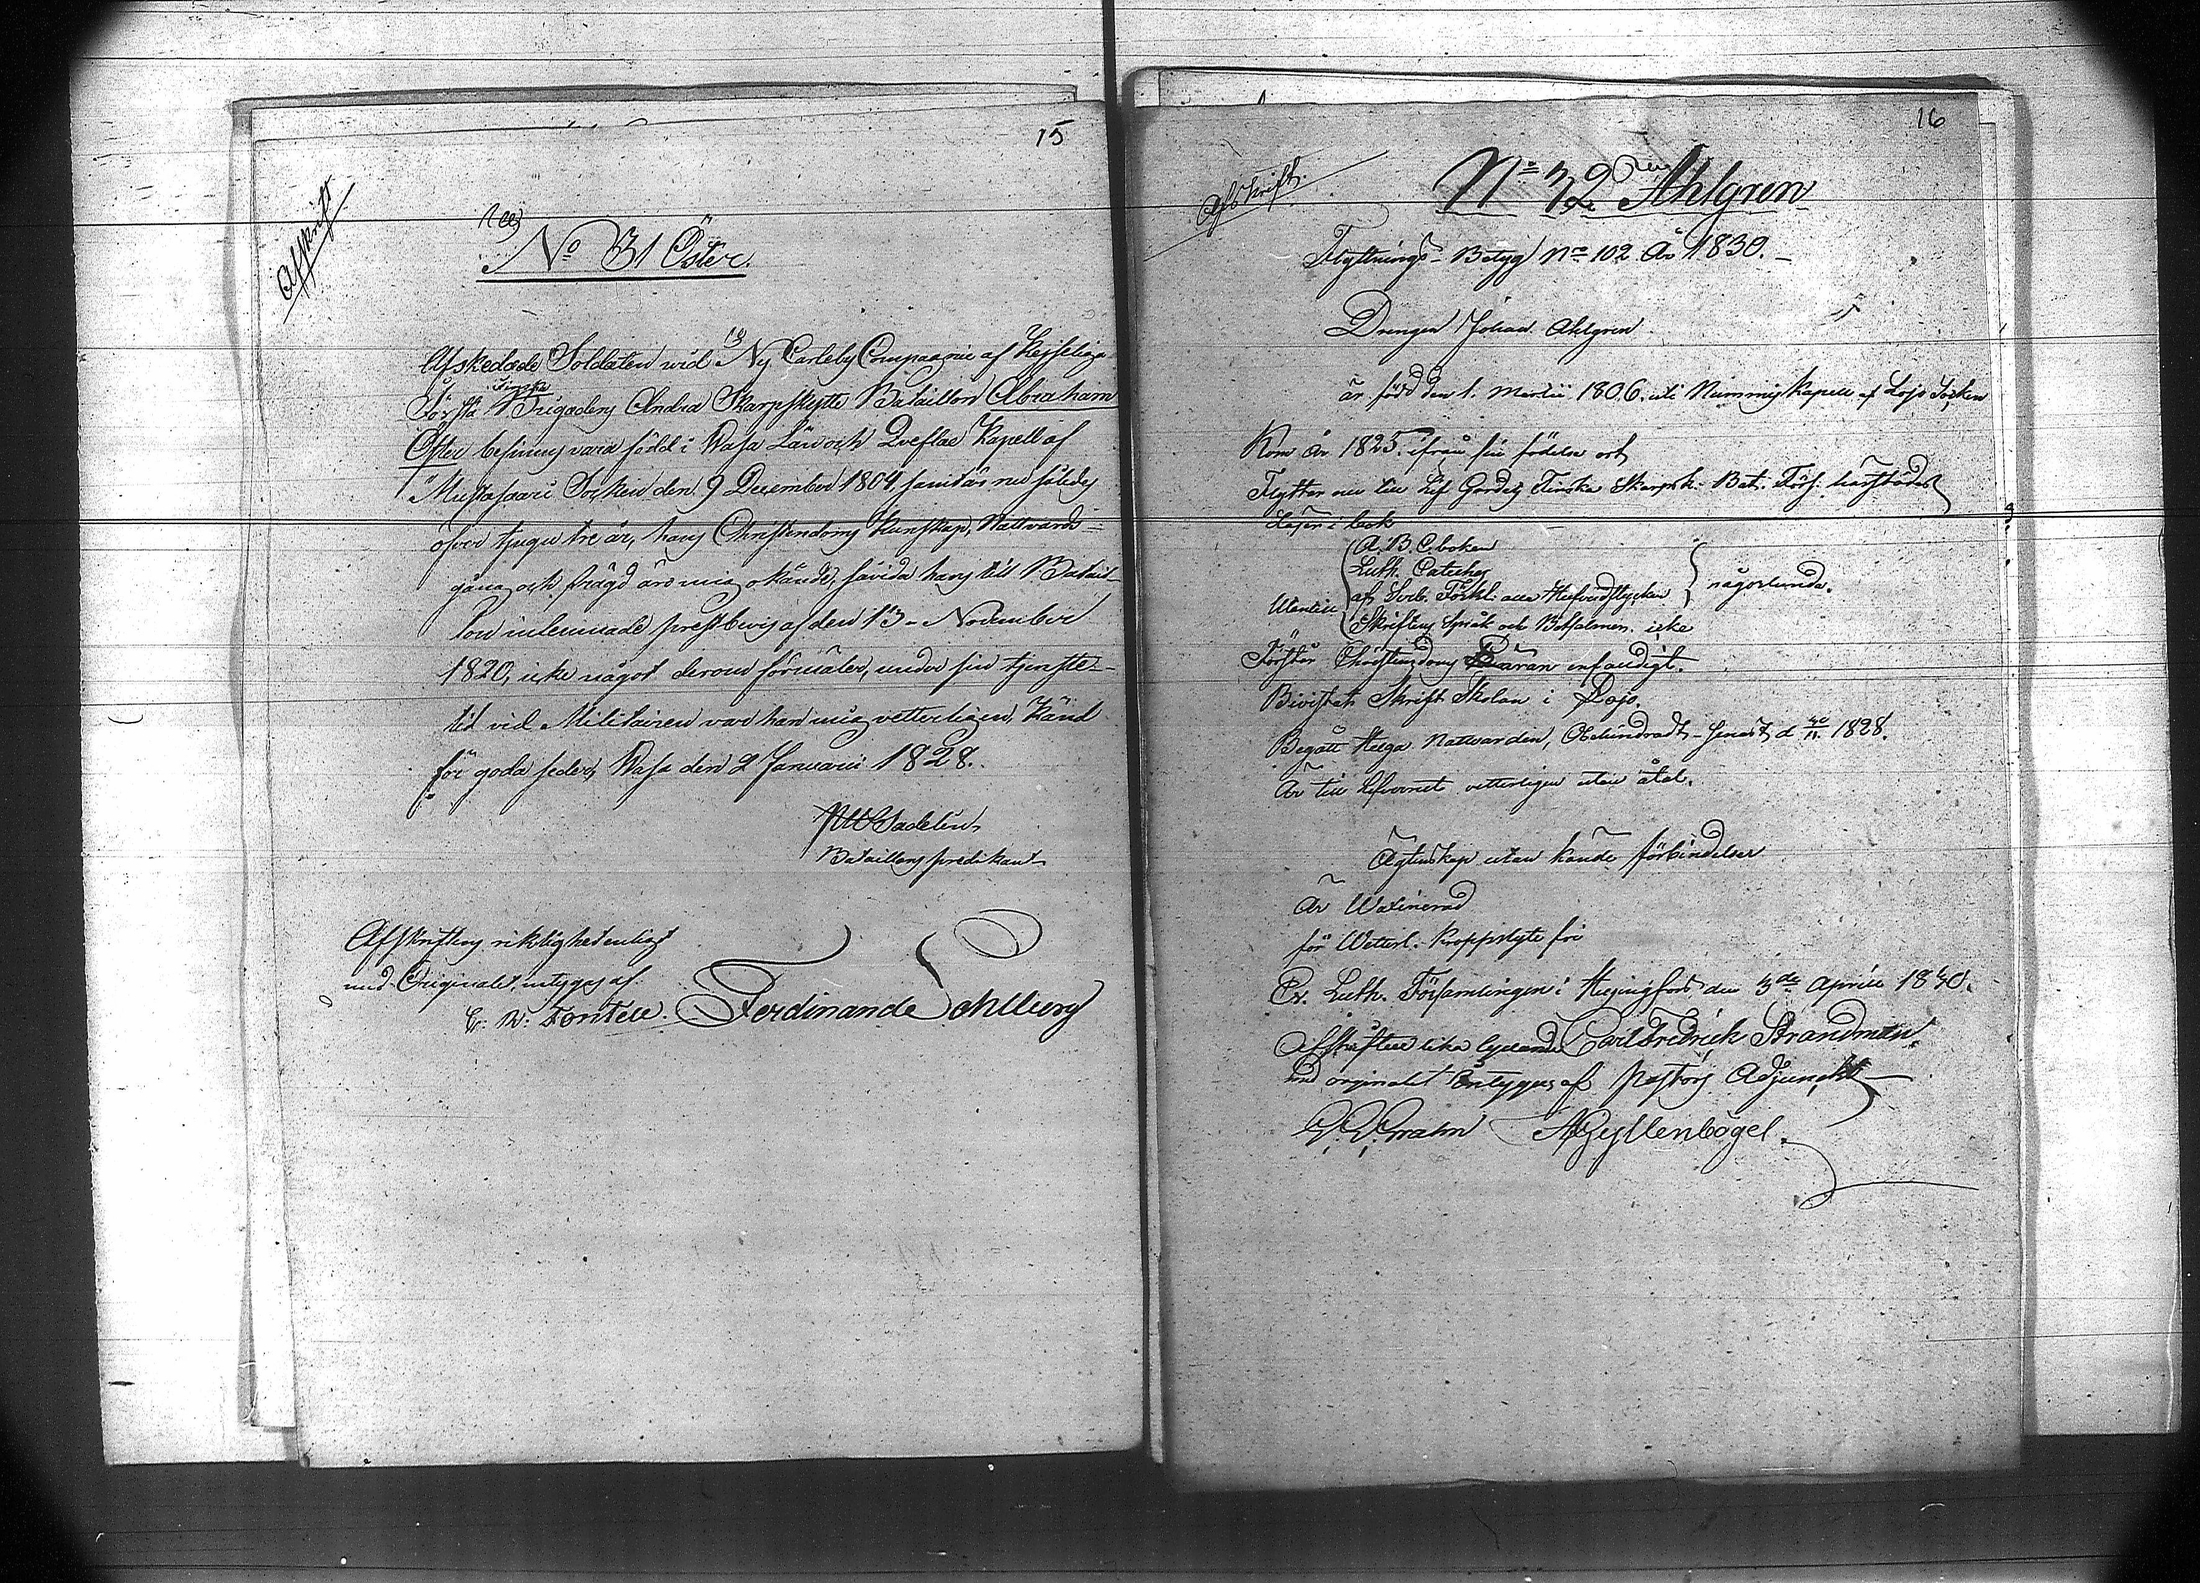 15
Afskrift
No 31 Öster.
Afskedade Soldaten wid Ny Carleby Compagnie af Kejserliga
Första Finska Brigadens Andra Skarpskytte Bataillon Abraham
Öster befinnes vara född i Wasa Län och Qveflax Kapell af
Mustasaari Socken den 9 December 1804, samt är nu således
öfver tjugu tre år, hans Christendoms Kunskap, Nattvards-
gång och frägd äro mig okände, såvida hans till Batail-
lon inlemnade prestbevis af den 13 November
1820, icke något derom förmäler, under sin tjenste-
tid vid Militairen var han mig vetterligen, känd
för goda seder, Wasa den 2 Januarii 1828.
Sadelin
Bataillons predikant
Afskriftens riktighet enligt
med Originalet, intygas af
Fontell. Ferdinand Sohlberg
16
Afskrift.
No 32 Ahlgren
Flyttnings-Betyg No 102 År 1830.
Drengen Johan Ahlgren
är född den 1. Martii 1806. uti Nummis Kapell af Lojo Socken
Kom år 1825 ifrån sin födelse ort
Flyttar nu till Lif Gardets Finska Skarpsk. Bat. Förs. härstädes
Läser i bok
Utantill
A.B.C. boken
Luth. Cateches
af Sveb. Förkl. alla Hufvudstycken
någorlunda.
Skriftens Språk och Botpsalmer. icke
Förstår Christendoms Läran enfaldigt.
Bivistat Skrift Skolan i Lojo.
Begått Helga Nattvarden, Obehindradt, senast d 30/11 1828.
Är till lefvernet vetterligen utan åtal.
Ägtenskap utan kände förbindelser
Är Waxinerad
för Wetterl. kroppslyte fri
Ev. Luth. Församlingen i Helsingfors den 3de Aprill 1830.
Afskriften lika lydande Carl Fredrick Strandman
med orginalet intygas af Pastors Adjunckt
Grahn A Gyllenbögel.